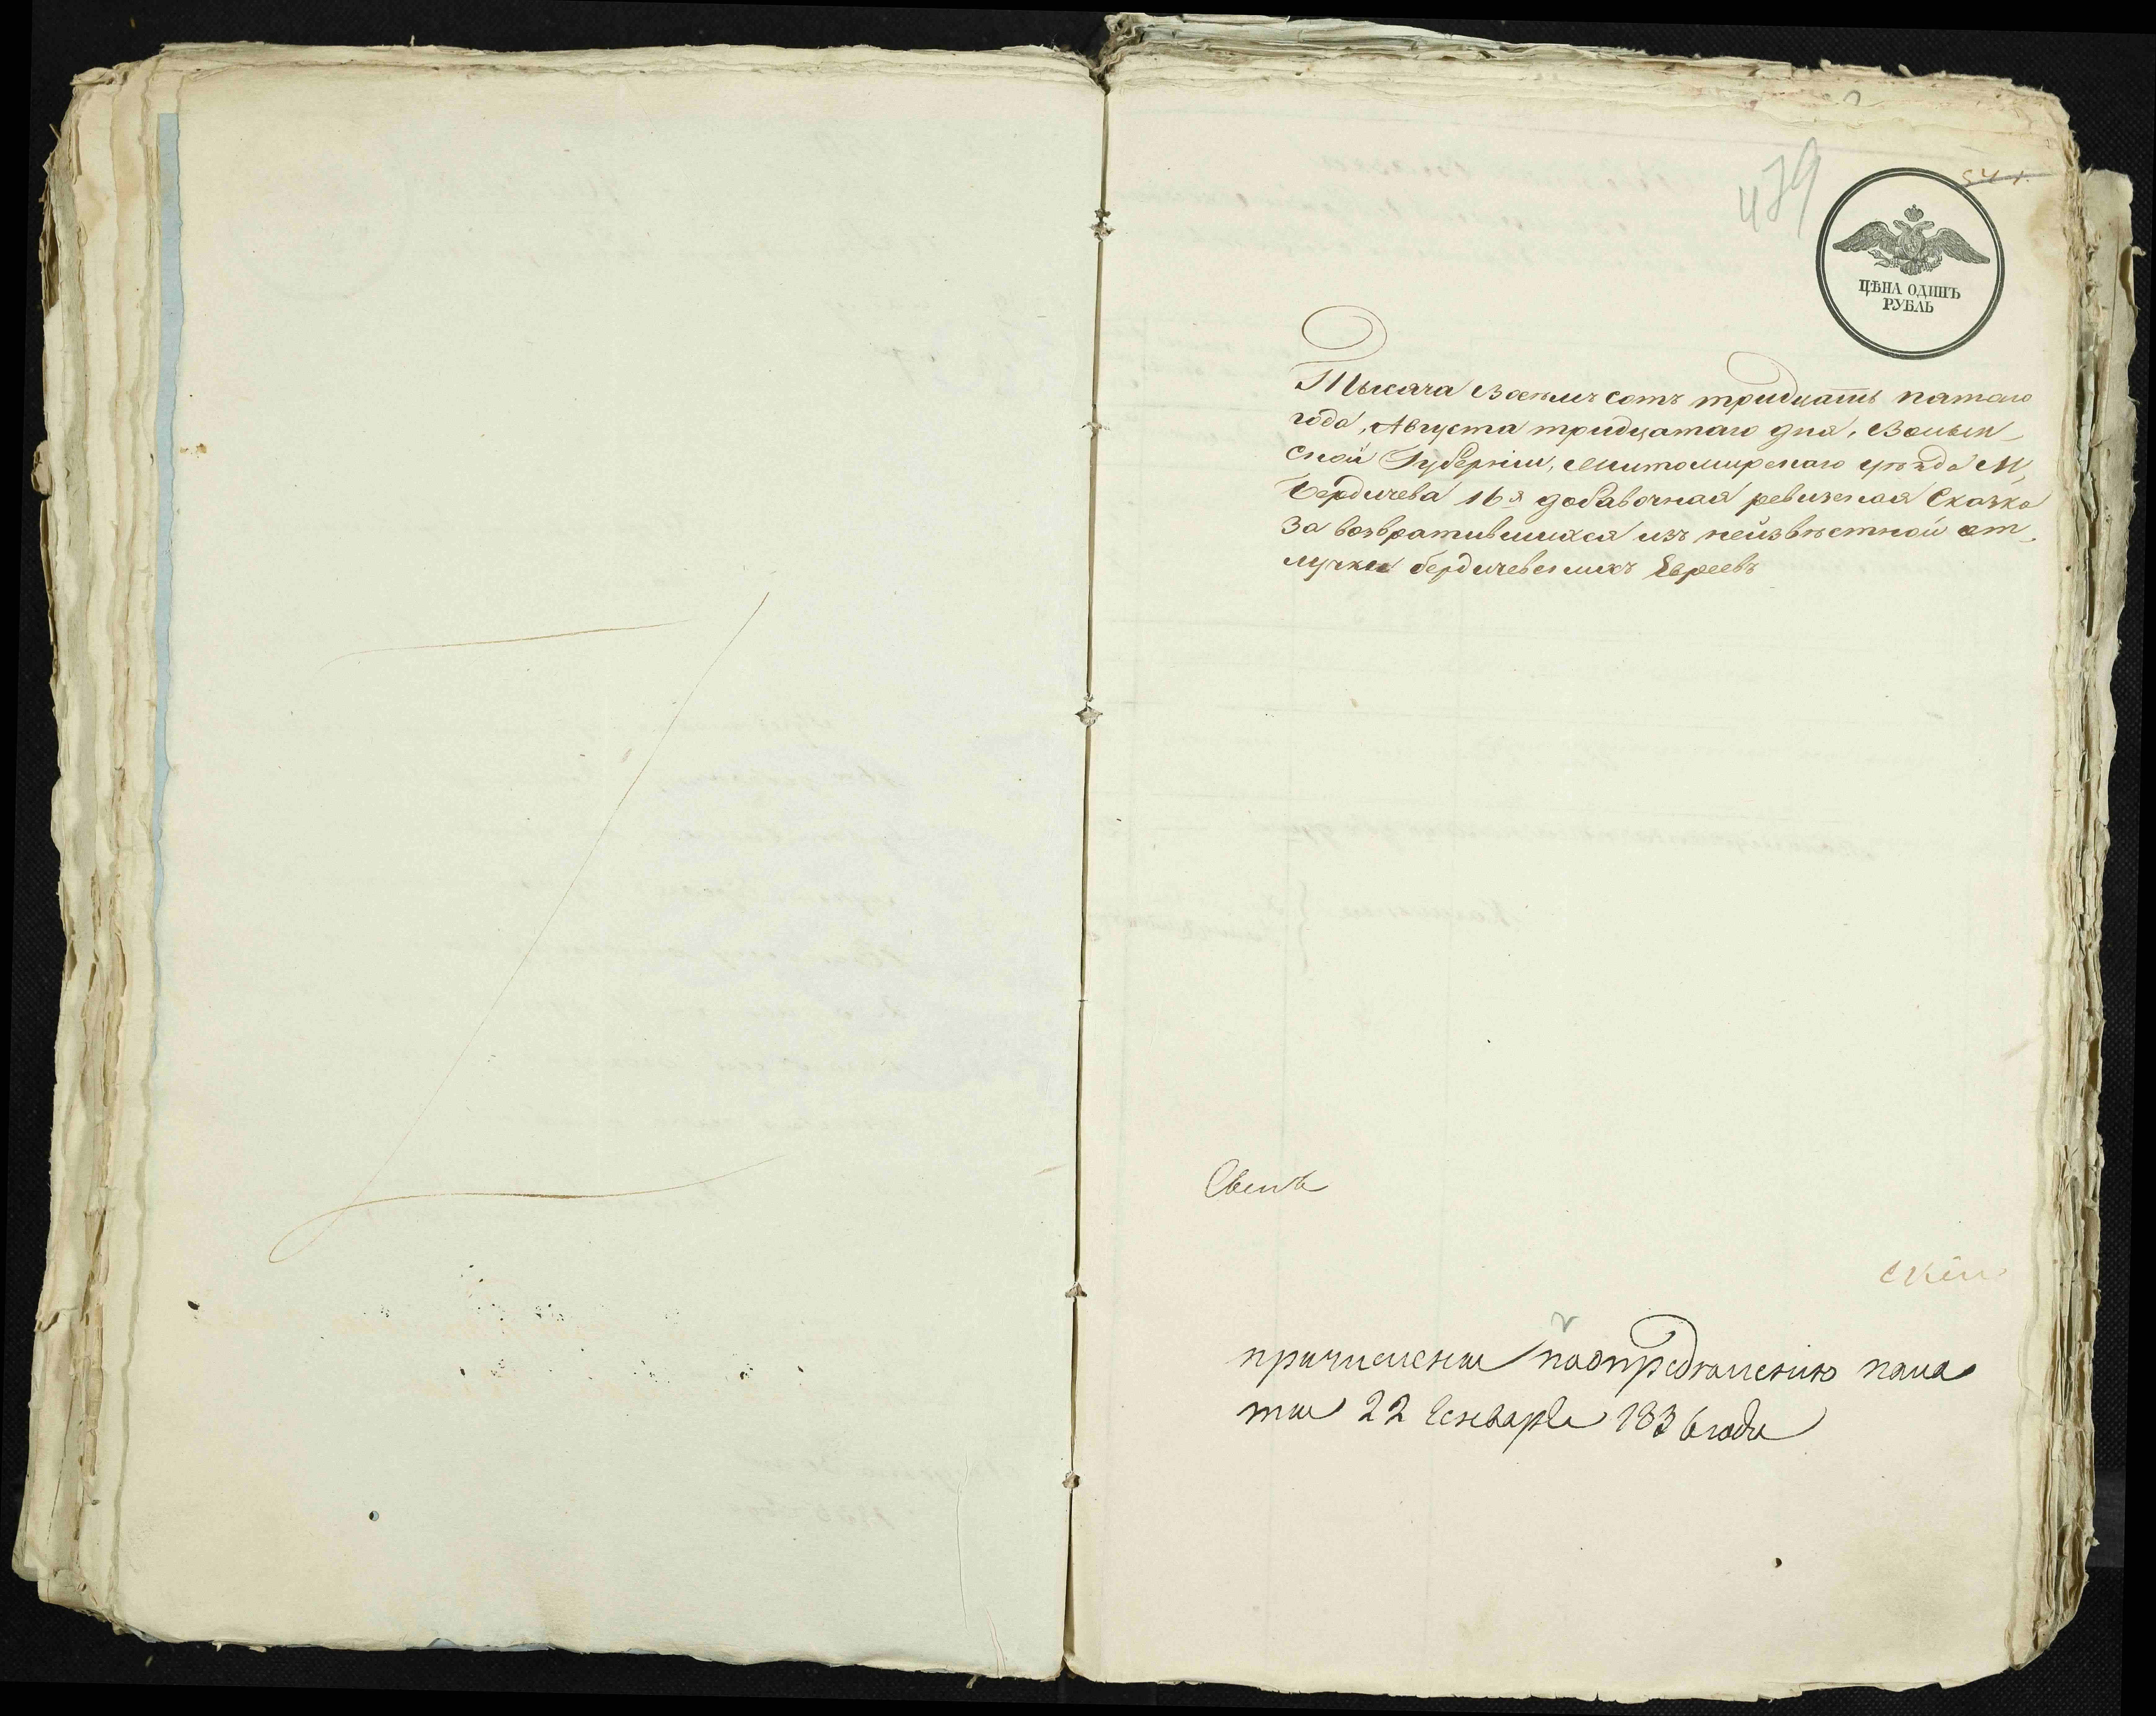 479
541.
ЦѢНА ОДИНЪ
РУБЛЬ
Тысяча Восемъ сотъ тридцать пятаго
года, Августа тридцатаго дня, Волын-
ской Губерніи, Житомирскаго уѣзда М,
Бердичева 16я добавочная ревизская Сказка
За возвратившихся изъ неизвѣстной от-
лучки бердичевскихъ Евреевъ
причислены по опредѣленію пала
ты 22 Генваря 1836 года